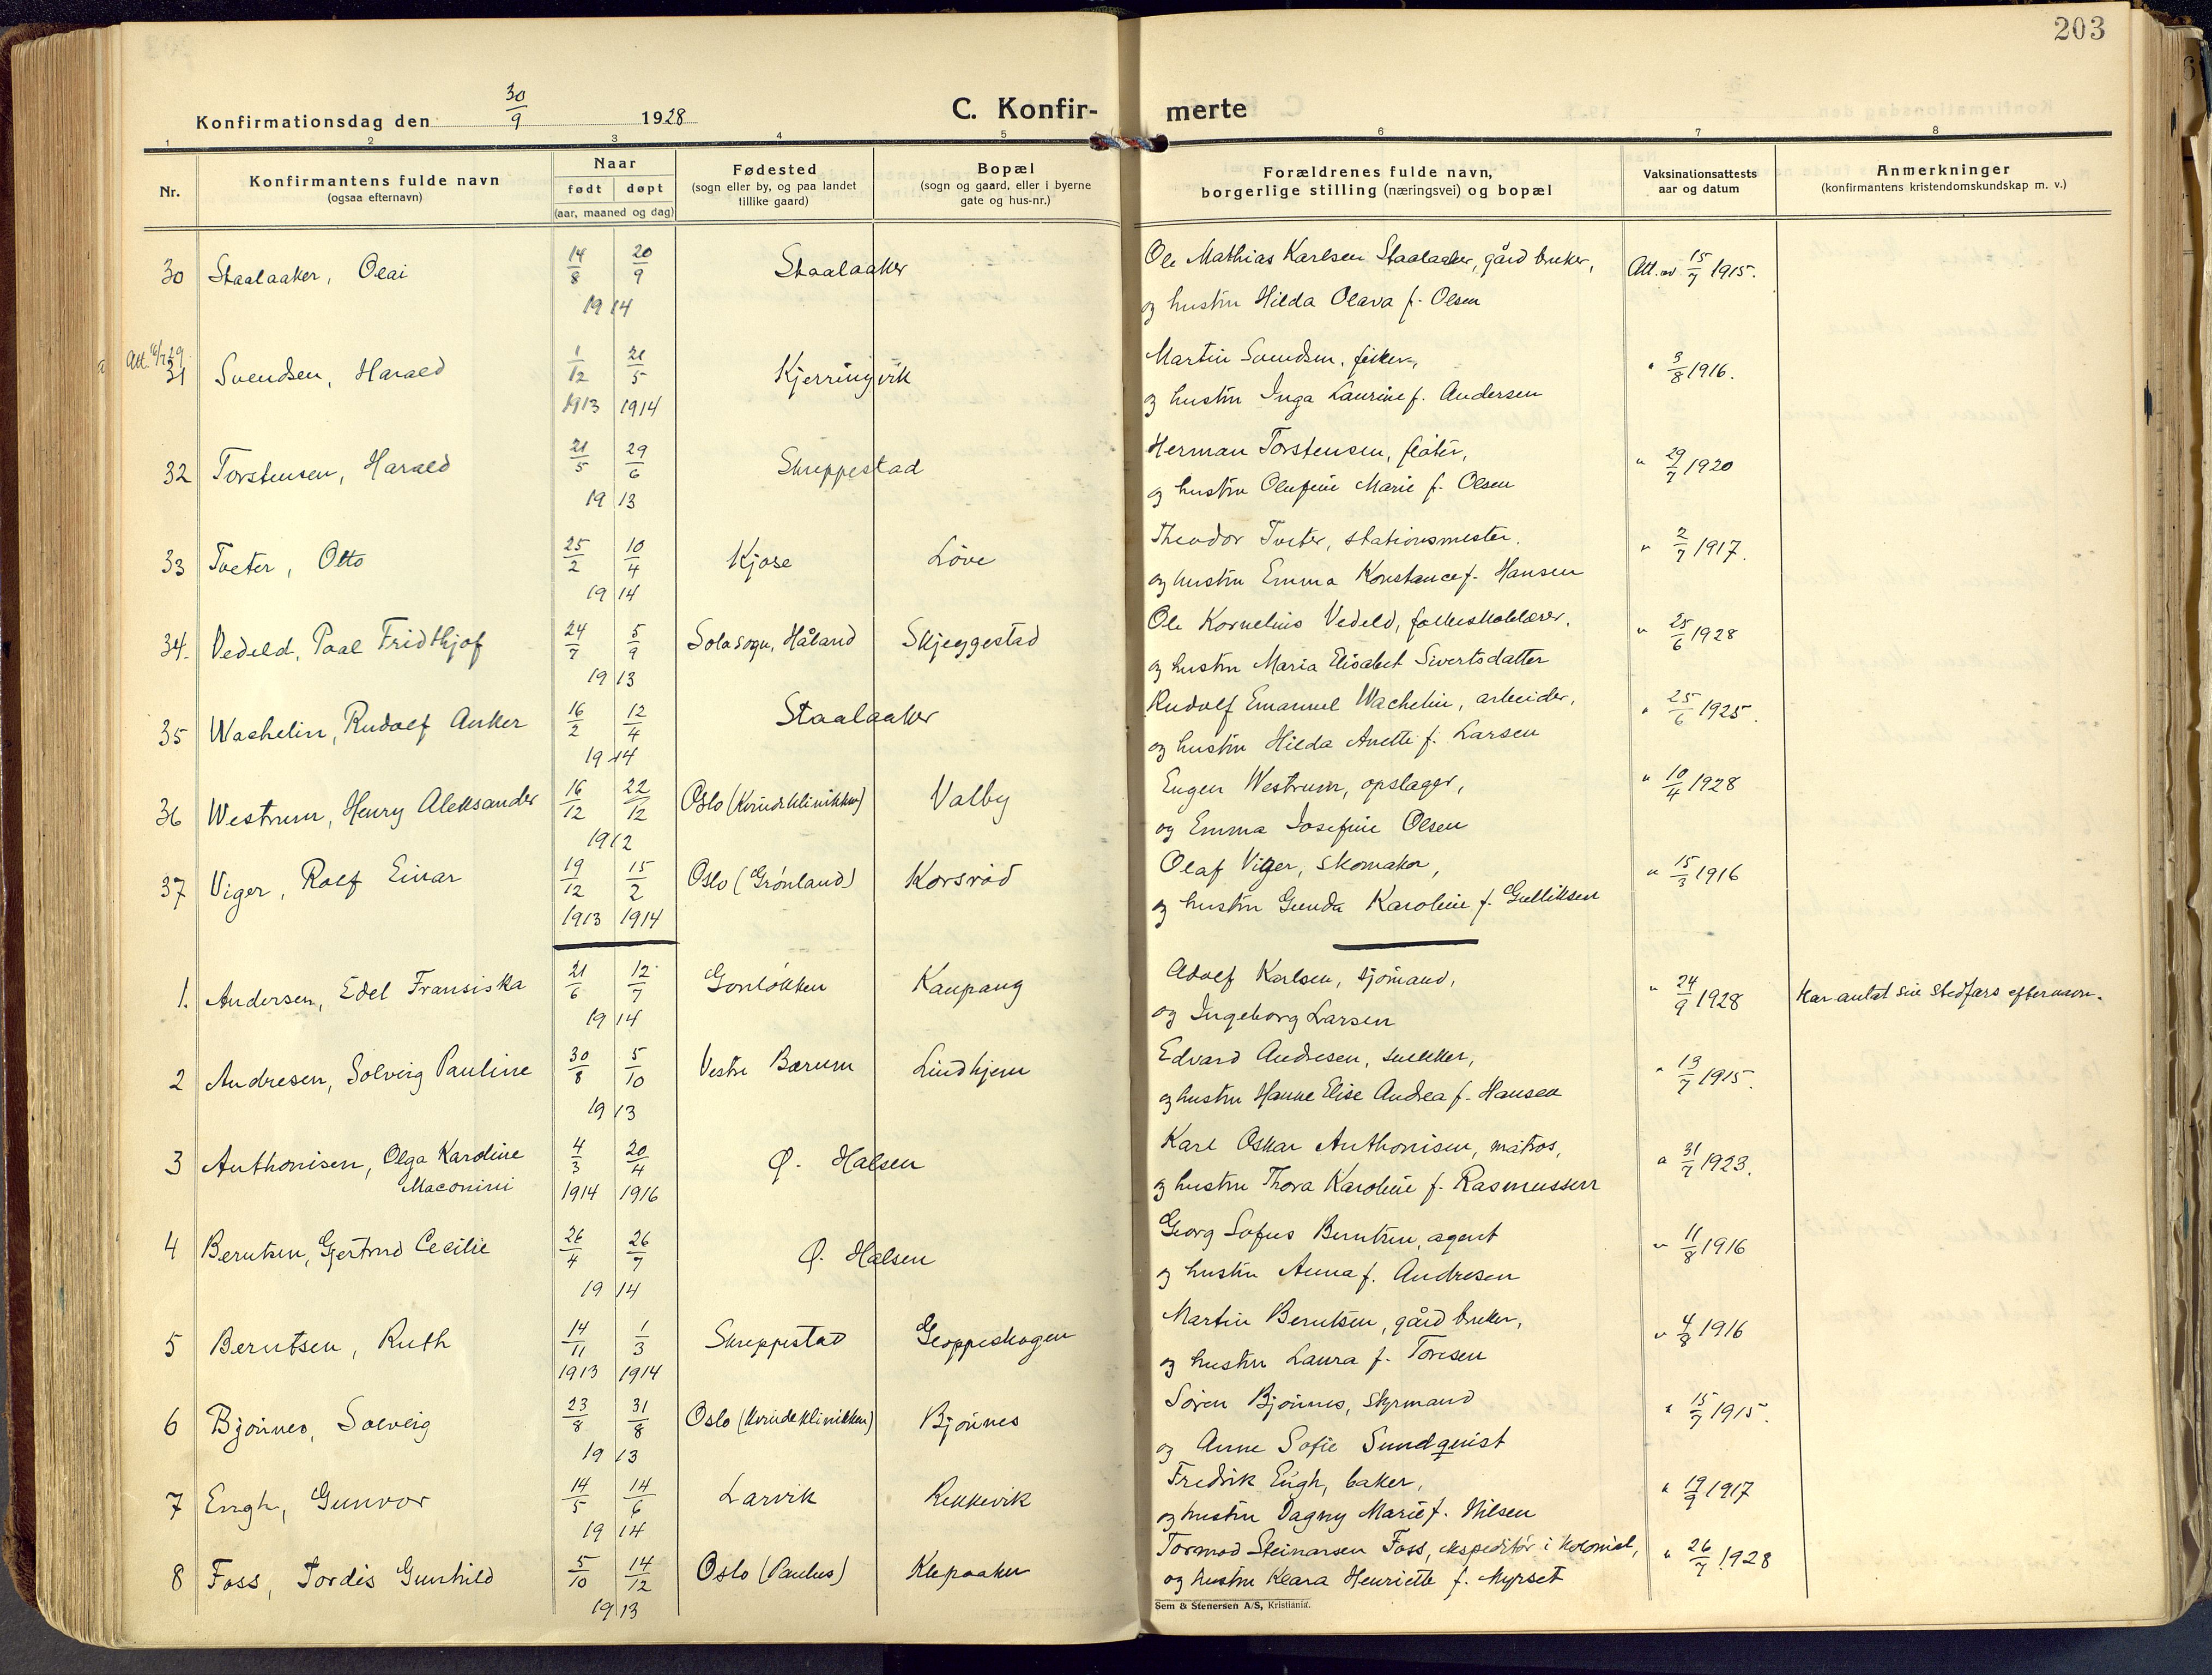 203
Konfirmationsdag den 30/9 1928
C. Konfir- merte
1 2 3 4 5 6 7 8
Nr.
Konfirmantens fulde navn
(ogsaa efternavn)
Naar
født døpt
(aar, maaned og dag)
Fødested
(sogn eller by, og paa landet
tillike gaard)
Bopæl
(sogn og gaard, eller i byerne
gate og hus-nr.)
Forældrenes fulde navn,
borgerlige stilling (næringsvei) og bopæl
Vaksinationsattests
aar og datum
Anmerkninger
(konfirmantens kristendomskundskap m. v.)
30 Staalaaker, Olai 14/8 20/9 Staalaaker Ole Mathias Karlsen Staalaaker, gård bruker, Att. av 15/7 1915.
1914 og hustru Hilda Olava f. Olsen
Att. 6/7 29
31 Svendsen, Harald 1/12 21/5 Kjerringvik Martin Svendsen, fisker, " 3/8 1916.
1913 1914 og hustru Inga Laurine f. Andersen
32 Torstensen, Harald 21/5 29/6 Skreppestad Herman Torstensen, fløter, " 29/7 1920
1913 og hustru Olufine Marie f. Olsen
33 Tveter, Otto 25/2 10/4 Kjose Løve Theodor Tveter, stationsmester. " 2/7 1917.
1914 og hustru Emma Konstance f. Hansen
34. Vedeld, Paal Fridthjof 24/7 5/9 Sola sogn, Håland Skjeggestad Ole Kornelius Vedeld, folkeskolelærer, " 25/6 1928
1913 og hustru Maria Elisabet Sivertsdatter
35 Wachelin, Rudolf Anker 16/2 12/4 Staalaaker Rudolf Emanuel Wachelin, arbeider, " 25/6 1925.
1914 og hustru Hilda Anette f. Larsen
36 Westrum, Henry Aleksander 16/12 22/12 Oslo (Kvindeklinikken) Valby Eugen Westrum, opslager, " 10/4 1928
1912 og Emma Josefine Olsen
37 Viger, Rolf Einar 19/12 15/2 Oslo (Grønland) Korsrød Olaf Viger, skomaker, " 15/3 1916
1913 1914 og hustru Gunda Karoline f. Gulliksen
1. Andersen, Edel Fransiska 21/6 12/7 Gonløkken Kaupang Adolf Karlsen, sjømand, " 24/9 1928 Har antat sin stedfars efternavn.
1914 og Ingeborg Larsen
2 Andresen, Solveig Pauline 30/8 5/10 Vestre Bærum Lindhjem Edvard Andresen, snekker, " 13/7 1915.
1913 og hustru Hanne Elise Andrea f. Hansen
3 Anthonisen, Olga Karoline 4/3 20/4 Ø. Halsen Karl Oskar Anthonisen, matros, " 31/7 1923.
Maconini 1914 1916 og hustru Thora Karoline f. Rasmussen
4 Berntsen, Gjertrud Cecilie 26/4 26/7 Ø. Halsen Georg Sofus Berntsen, agent " 11/8 1916
1914 og hustru Anna f. Andresen
5 Berntsen, Ruth 14/11 1/3 Skreppestad Gloppeskogen Martin Berntsen, gård bruker, " 4/8 1916
1913 1914 og hustru Laura f. Toresen
6 Bjønnes, Solveig 23/8 31/8 Oslo (Kvindeklinikken) Bjønnes Søren Bjønnes, styrmand " 15/7 1915.
1913 og Anne Sofie Sundquist
7 Engh, Gunvor 14/5 14/6 Larvik Rekkevik Fredrik Engh, baker, " 19/9 1917
1914 og hustru Dagny Marie f. Nilsen
8 Foss, Tordis Gunhild 5/10 14/12 Oslo (Paulus) Klepaaker Tormod Steinarsen Foss, ekspeditør i kolonial, " 26/7 1928
1913 og hustru Klara Henriette f. Myrset
Sem & Stenersen A/S, Kristiania.